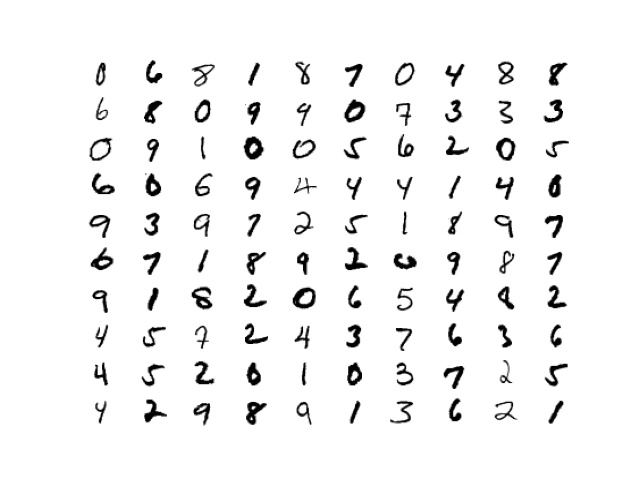 0 6 8 1 8 7 0 4 8 8
6 8 0 9 9 0 7 3 3 3
0 9 1 0 0 5 6 2 0 5
6 0 6 9 4 4 4 1 4 0
9 3 9 7 2 5 1 8 9 7
6 7 1 8 9 2 0 9 8 7
9 1 8 2 0 6 5 4 8 2
4 5 7 2 4 3 7 6 3 6
4 5 2 0 1 0 3 7 2 5
4 2 9 8 9 1 3 6 2 1